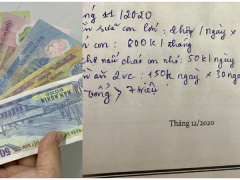 áng 11/2020
sữa con lớn: 1 hộp / ngày x
con: 800k / tháng
nấu cháo con nhỏ: 50k / ngày
ăn 2vc: 150k ngày x 30 ngà
tổng > 7 triệu
Tháng 12/2020
50